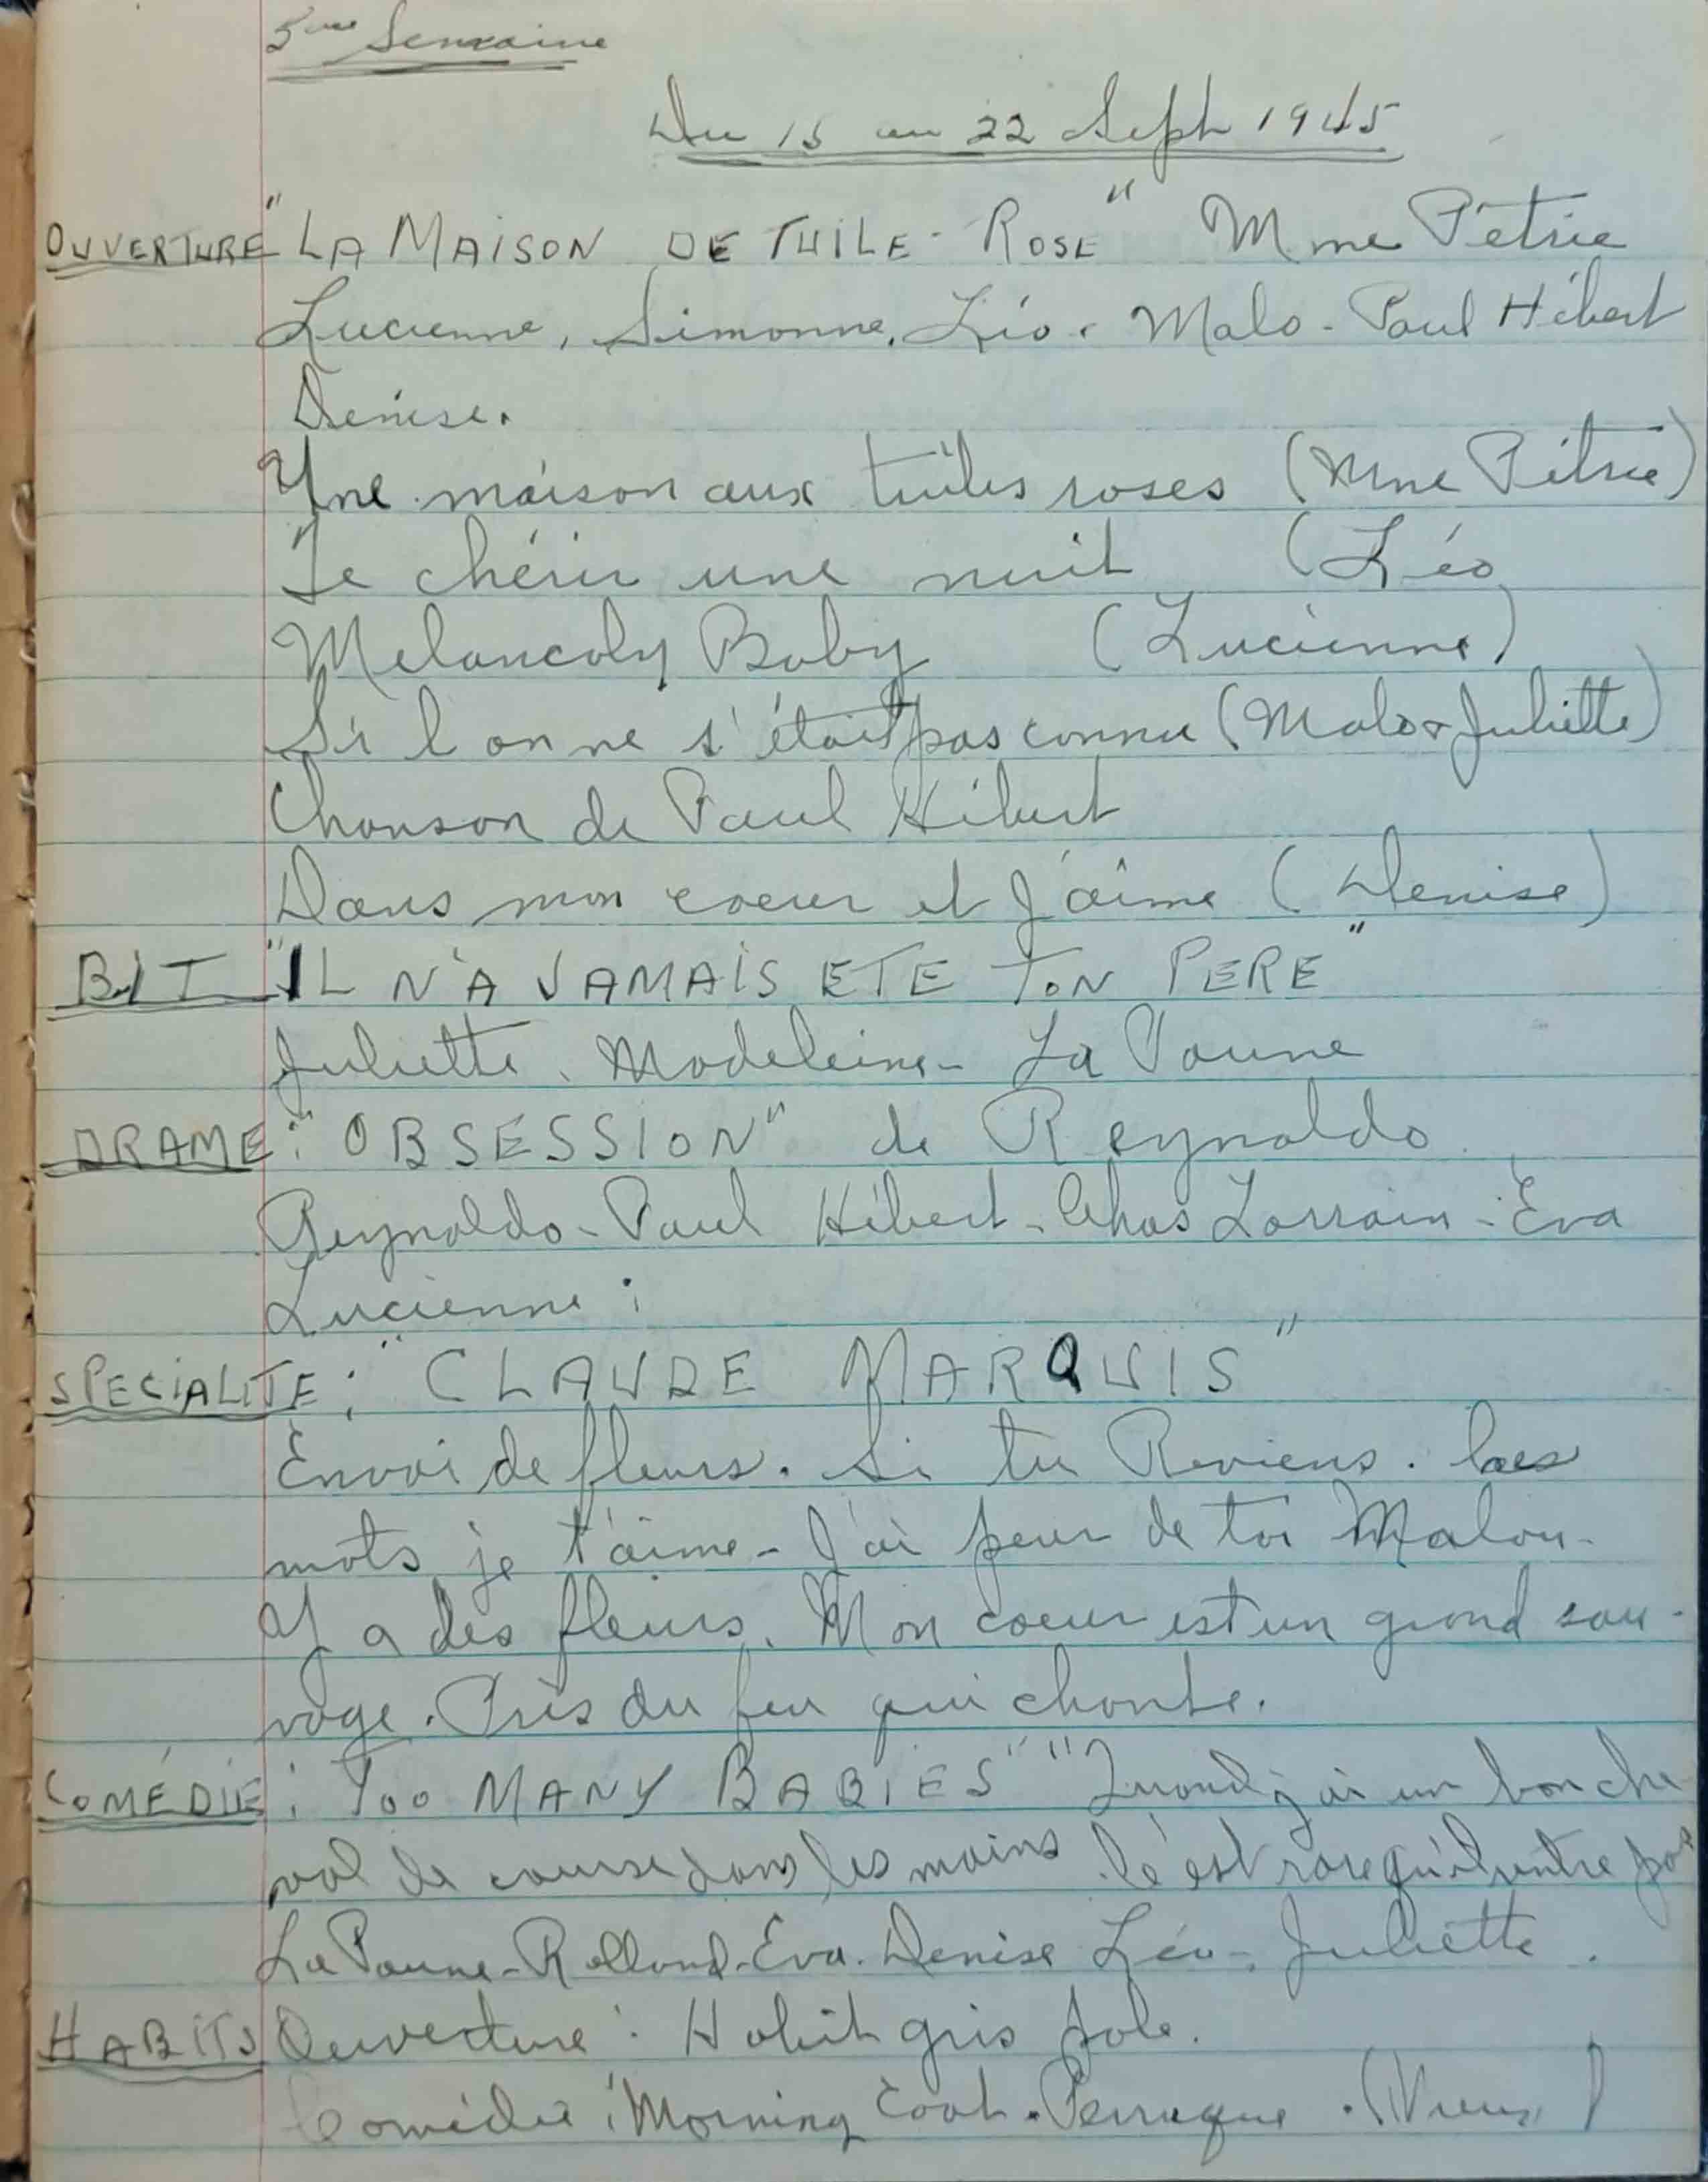 5me Semaine
Du 15 au 22 Sept 1945
OUVERTURE "LA MAISON DE TUILE - ROSE" Mme Pétrie
Lucienne, Simonne, Léo - Malo - Paul Hébert
Denise.
Une maison aux tuiles roses (Mme Pétrie)
Te chérir une nuit (Léo
Melancoly Baby (Lucienne)
Si l on ne s'était pas connu (Malo & Juliette)
Chanson de Paul Hébert
Dans mon coeur et J'aime (Denise)
BIT "IL N'A JAMAIS ETE TON PERE"
Juliette. Madeleine - La Poune
DRAME: "OBSESSION" de Reynaldo
Reynaldo - Paul Hébert - Chas Lorrain - Eva
Lucienne:
SPECIALITE: "CLAUDE MARQUIS"
Envoi de fleurs. Si tu Reviens. Ces
mots je t'aime - J'ai peur de toi Malou -
Y a des fleurs. Mon coeur est un grand sau-
vage. Près du feu qui chante.
COMÉDIE: "TOO MANY BABIES" "Quand j'ai un bon che
val de course dans les mains C'est rare qu'il rentre pas"
La Poune - Rolland - Eva. Denise Léo - Juliette.
HABITS Ouverture: Habit gris pale.
Comédie: Morning Coat. Perruque. (Vieux)